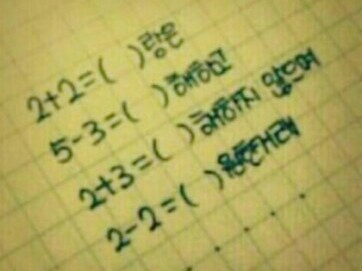 2+2=( )랑은
5-3=( )해하고
2+3=( )해하지 않으며
2-2=( )원한거래